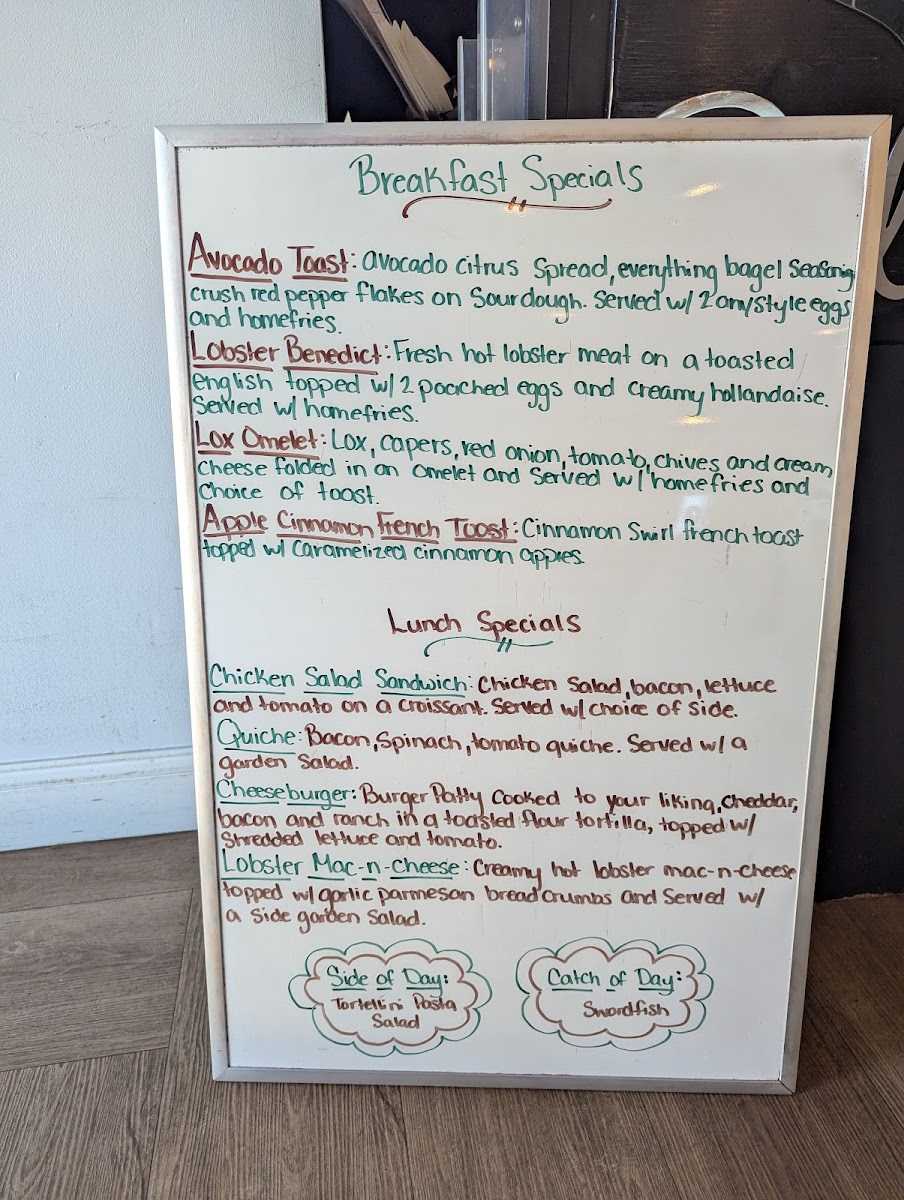 Breakfast Specials
Avocado Toast: avocado citrus spread, everything bagel seasoning
crush red pepper flakes on Sourdough. Served w/ 2 any style eggs
and homefries.
Lobster Benedict: Fresh hot lobster meat on a toasted
english topped w/ 2 poached eggs and creamy hollandaise.
Served w/ homefries.
Lox Omelet: Lox, capers, red onion, tomato, chives and cream
cheese folded in an omelet and Served w/ homefries and
choice of toast.
Apple Cinnamon French Toast: Cinnamon Swirl french toast
topped w/ Caramelized cinnamon apples.
Lunch Specials
Chicken Salad Sandwich: Chicken Salad, bacon, lettuce
and tomato on a croissant. Served w/ choice of side.
Quiche: Bacon, Spinach, tomato quiche. Served w/ a
garden Salad.
Cheeseburger: Burger Patty Cooked to your liking, cheddar,
bacon and ranch in a toasted flour tortilla, topped w/
Shredded lettuce and tomato.
Lobster Mac-n-Cheese: Creamy hot lobster mac-n-cheese
topped w/ garlic parmesan bread crumbs and Served w/
a Side garden Salad.
Side of Day:
Tortellini Pasta
Salad
Catch of Day:
Swordfish